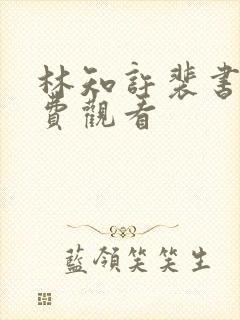 林知許裴書
費觀看
藍領笑笑生